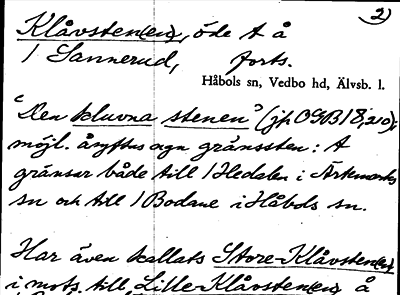 2)
Klåvsten(en), öde t å
1 Sannerud, forts.
Håbols sn, Vedbo hd, Älvsb. l.
"Den kluvna stenen" (jfr OGB 18, 210);
möjl. åsyftas ngn gränssten: t
gränsar både till 1 Hedalen i Ärtemarks
sn och till 1 Bodane i Håbols sn.
Har även kallats Store-Klåvsten(en)
i mots. till Lille-Klåvsten(en) å